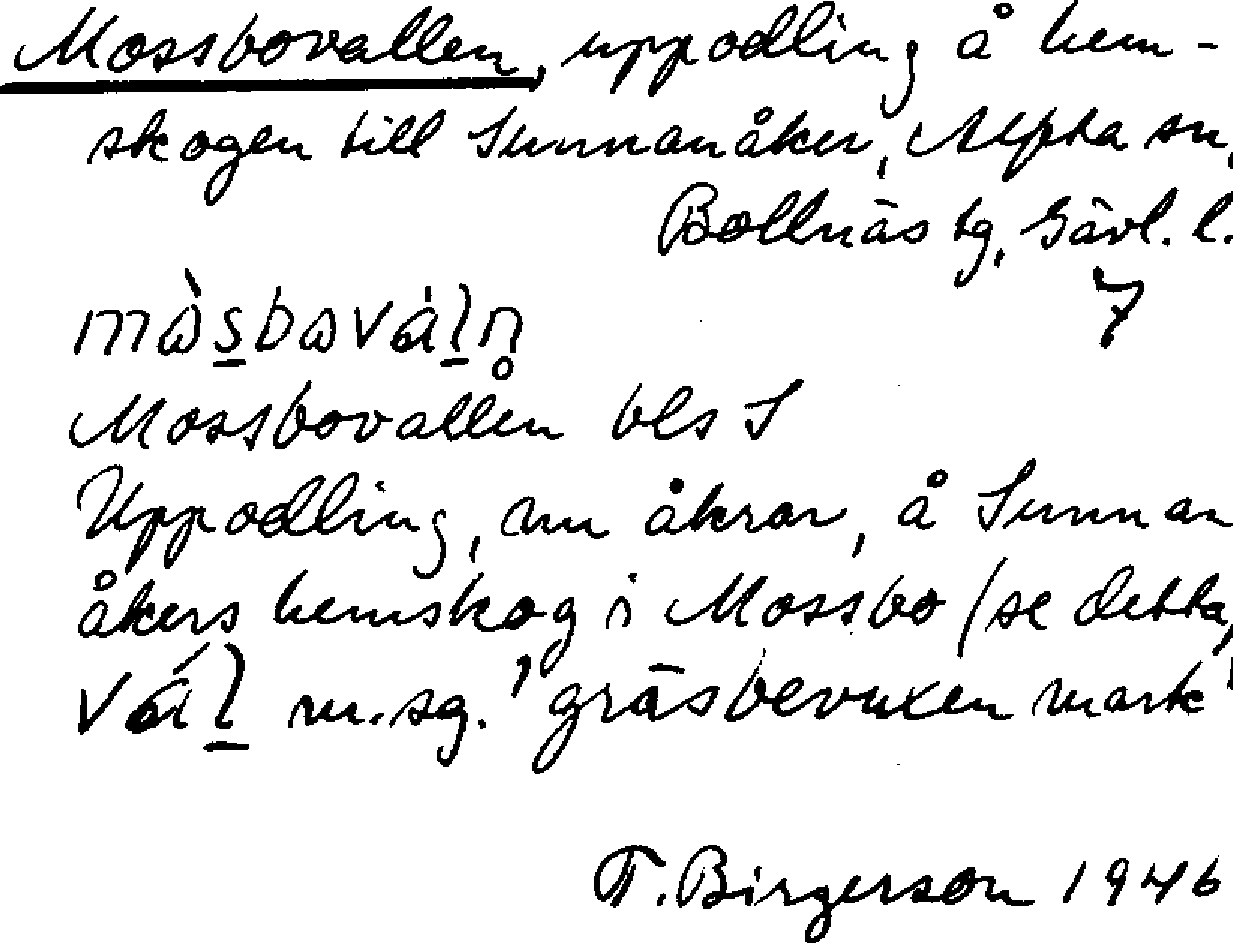 Mossbovallen, uppodling å hem-
skogen till Sunnanåker, Alfta sn,
Bollnäs tg, Gävl. l.
7
mɷ̀s̱bɷváḻn̥
Mossbovallen bls S
Uppodling, nu åkrar, å Sunnan
åkers hemskog i Mossbo (se detta)
váḻ m.sg. 'gräsbevuxen mark'
T. Birgerson 1946